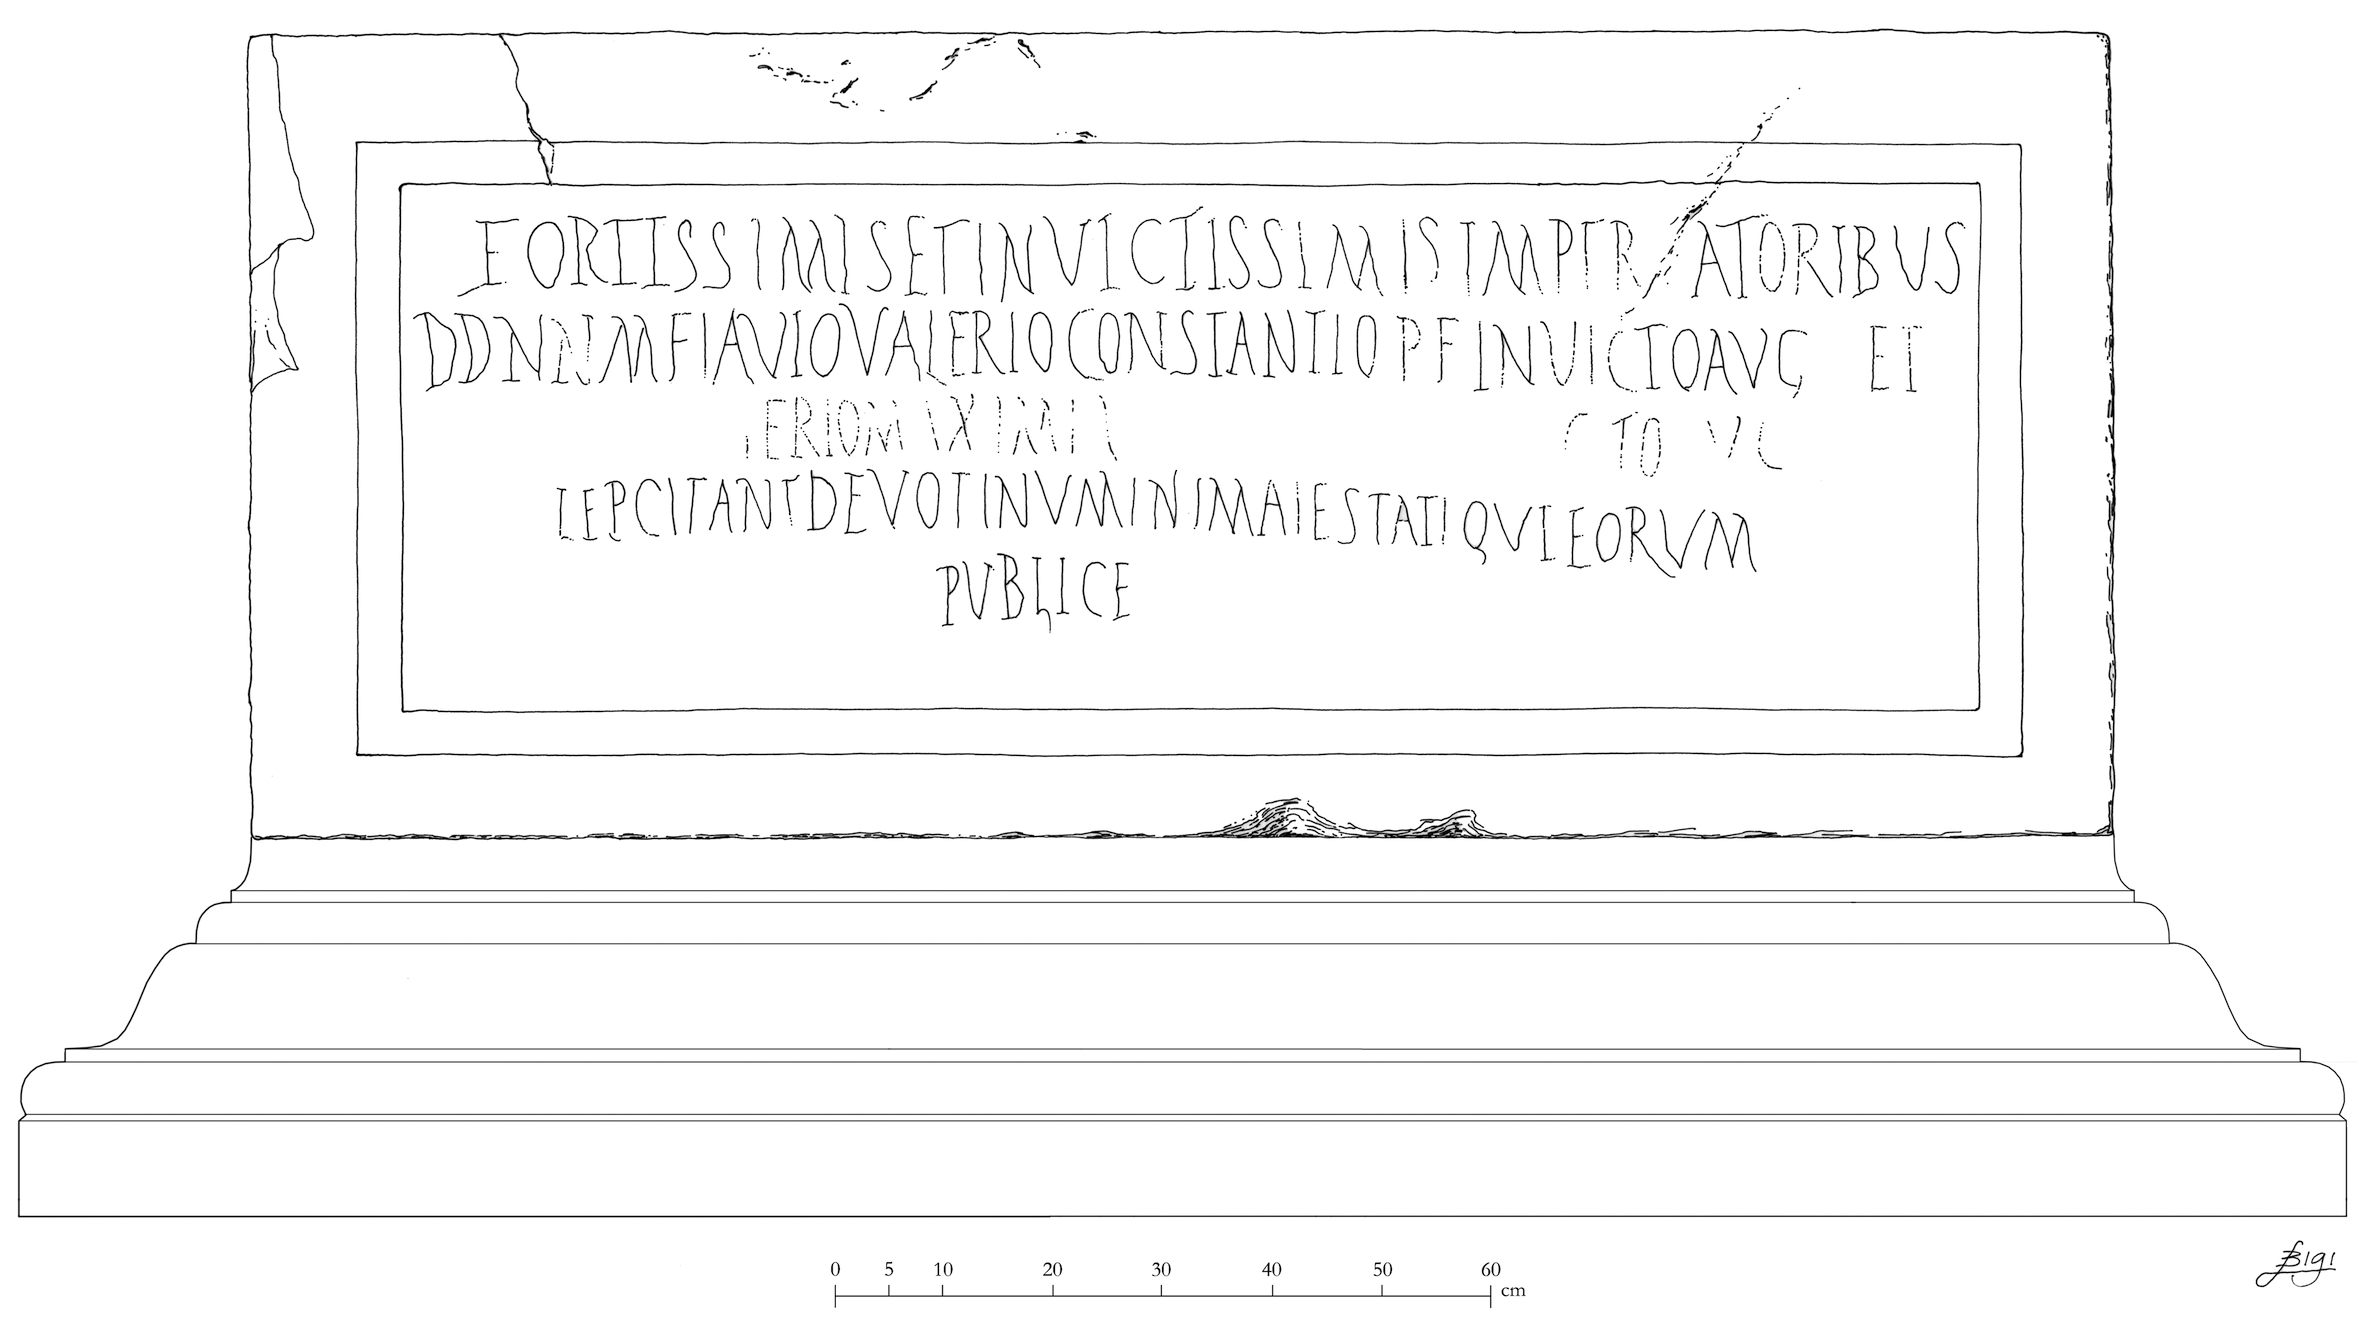 FORTISSIMIS ET INVICTISSIMIS IMPERATORIBUS
DD NN IM FLAVIO VALERIO CONSTANTIO P F INVICTO AVG ET
ERIO MAXIMI CTO VG
LEPCITANI DEVOTI NVMINI MAIESTATIQVE EORVM
PVBLICE
0 5 10 20 30 40 50 60 cm
Bigi